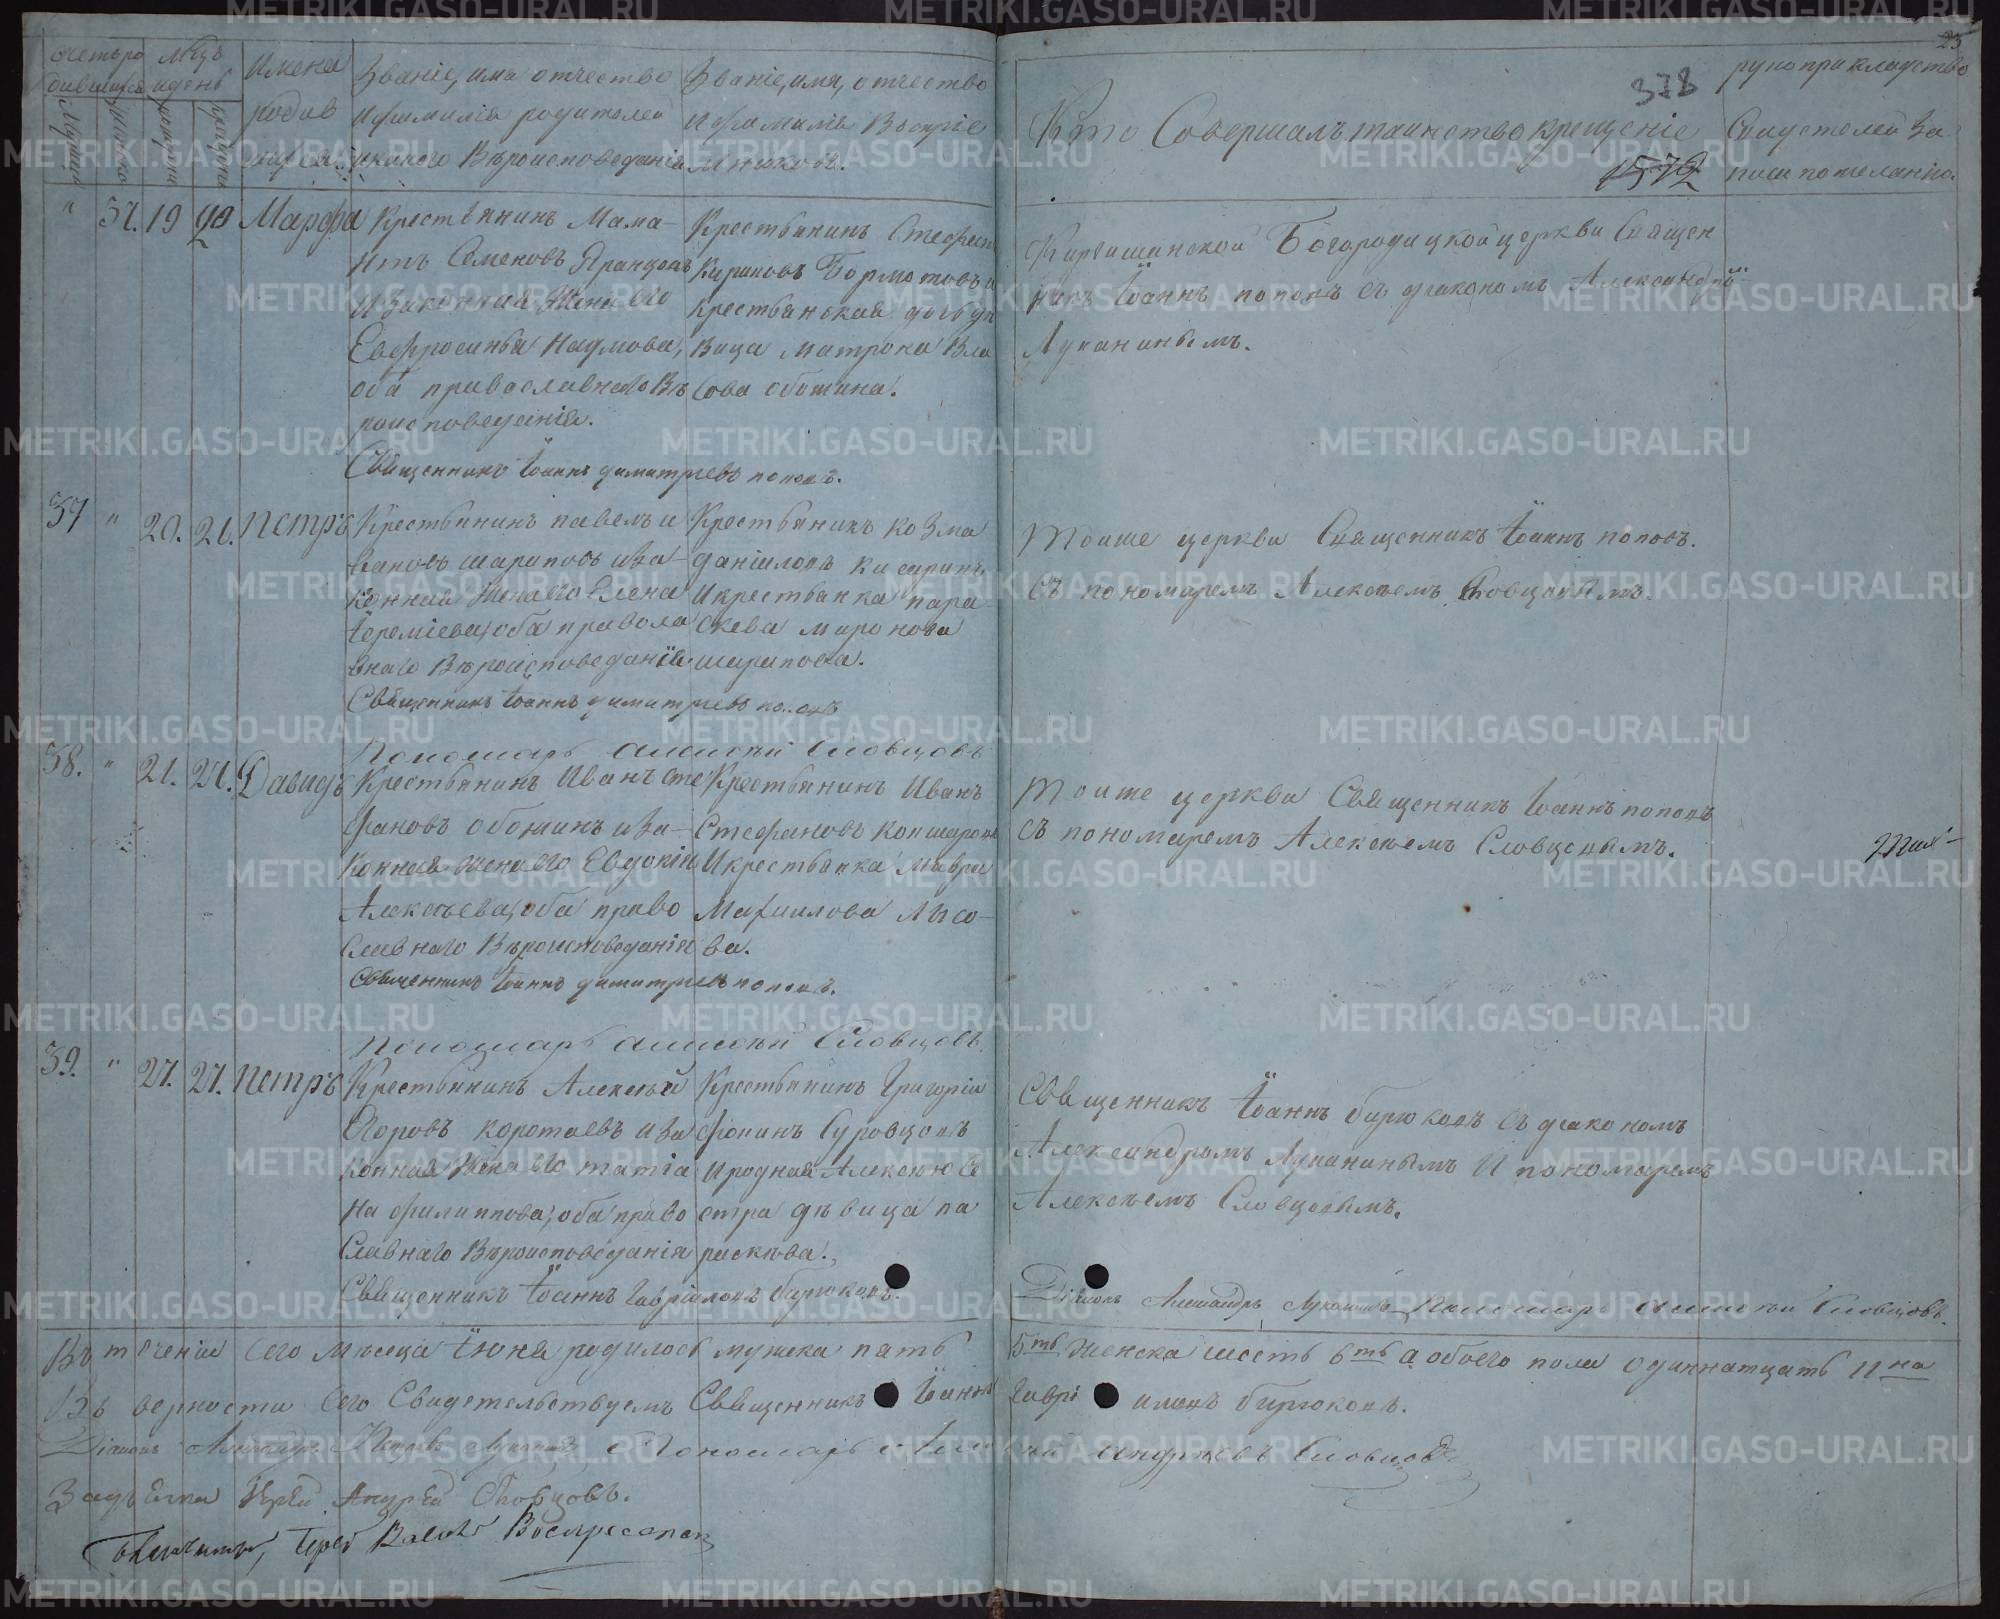 Щетъ ро
дившихся
Мѣсяцъ
и день
Имена
родив
шихся.
Званіе, имя отчество
и фамилія родителей
и какого Вѣроисповеданія
Званіе, имя, отчество
и фамилія Воспріе
мниковъ.
Кто Совершалъ таинство крещеніе
рукоприкладство
Свидетелей за
писи по желанію.
23
378
1572
" 37. 19 20 Марфа
Крестьянинъ Мама-
нтъ Семеновъ
и законная жена его
Евфросинья Наумова,
оба православнаго Вѣ
роисповеданія.
Священникъ Іоаннъ Димитріевъ Поповъ.
Крестьянинъ Стефанъ
Кириловъ Бормотовъ и
крестьянская дочь дѣ
вица Матрона Вла
сова Обожина.
Богородицкой церкви Священ
никъ Іоаннъ Поповъ съ діакономъ Александромъ
Луканинымъ.
37 " 20. 21. Петръ
Крестьянинъ Павелъ И
вановъ Шариповъ и за-
конная жена его Елена
Іереміева, оба правосла
внаго Вѣроисповеданія.
Священникъ Іоаннъ Димитріевъ Поповъ
Пономарь Алексѣй Словцовъ
Крестьянинъ Козма
Даніиловъ
и крестьянка Пара-
скева Миронова
Шарипова.
Тоиже церкви Священникъ Іоаннъ Поповъ.
Съ пономаремъ Алексѣемъ Словцовымъ.
38. " 21. 21. Давидъ
Крестьянинъ Иванъ Сте
фановъ Обожинъ и за-
конная жена его Евдокія
Алексѣева, оба право
славнаго Вѣроисповеданія
Священникъ Іоаннъ Димитріевъ Поповъ.
Пономарь Алексѣй Словцовъ
Крестьянинъ Иванъ
Стефановъ Кокшаровъ
и крестьянка Мавра
Маѳиилова Лысо-
ва.
Тоиже церкви Священникъ Іоаннъ Поповъ
съ пономаремъ Алексѣемъ Словцовымъ.
39. " 27. 27. Петръ
Крестьянинъ Алексѣй
Егоровъ Коротаевъ и за
конная жена его Татіа
на Филиппова, оба право
славнаго Вѣроисповеданія
Священникъ Іоаннъ Гавріиловъ Бирюковъ.
Крестьянинъ Григоріи
Фокинъ Суровцовъ
и родная Алексѣю се
стра дѣвица Па
раскѣва.
Священникъ Іоаннъ Бирюковъ съ діакономъ
Александромъ Луканинымъ и пономаремъ
Алексѣемъ Словцовымъ.
Діаконъ Александръ Луканинъ Пономарь Алексѣй Словцовъ.
Въ теченіе сего мѣсеца Іюня родилось мужска пять 5ть женска шесть 6ть а обоего пола одиннатцать 11на
Въ верности сего Свидетельствуемъ Священникъ Іоаннъ Гавріиловъ Бирюковъ.
Діаконъ Александръ Луканинъ Пономарь Алексѣй Андреевъ Словцовъ
Іерей Андрей Словцовъ.
Іерей
METRIKI.GASO-URAL.RU